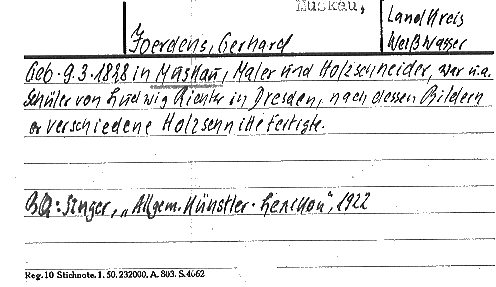 Muskau,
Landkreis
Weißwasser
Joerdens, Gerhard
Geb. 9.3.1848 in Muskau, Maler und Holzschneider, war u.a.
Schüler von Ludwig Richter in Dresden, nach dessen Bildern
er verschiedene Holzschnitte fertigte.
BQ: Singer, „Allgem. Künstler-Lexikon", 1922
Reg. 10 Stichnote. 1. 50. 232000. A. 803. S. 4662